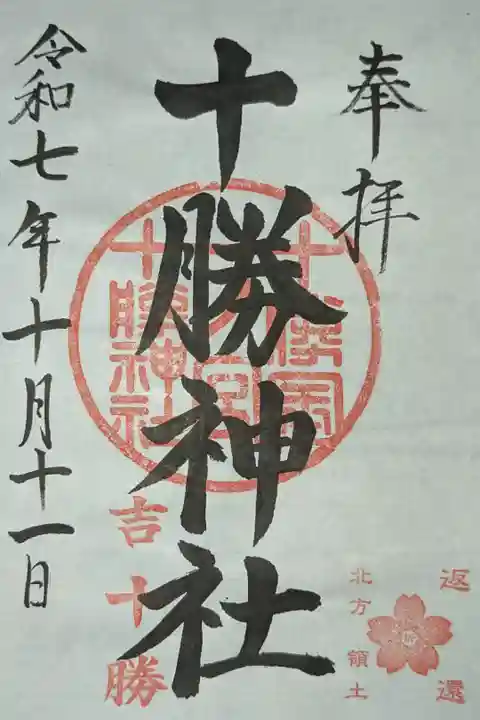 奉拝
十勝神社
令和七年十月十一日
十勝神社
吉
十
勝
返還
北方領土